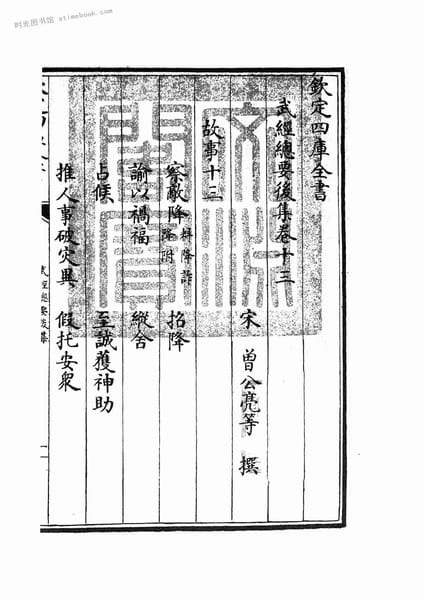 时光图书馆 www.atimebook.com
欽定四庫全書
武經總要後集卷十三
宋 曾公亮等 撰
故事十三
察敵降 招降
諭以禍福 縱舍
占候 至誠獲神助
推人事破災異 假托安衆
武經總要後集